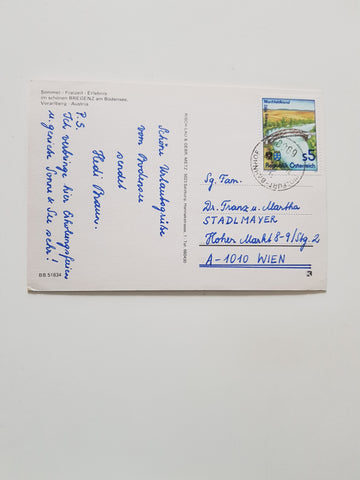 Sommer · Freizeit · Erlebnis
im schönen BREGENZ am Bodensee,
Vorarlberg · Austria
Schöne Urlaubsgrüße
vom Bodensee
sendet
Hedi Braun.
P.S.
Ich verbringe hier Erholungsferien
u. genieße Sonne & See sehr!
BB 51634
RISCH-LAU & GEBR. METZ
Marchfeldkanal
S5
Republik Österreich
Sg. Fam.
Dr. Franz u. Martha
STADLMAYER
Hoher Markt 8-9/Stg. 2
A-1010 WIEN